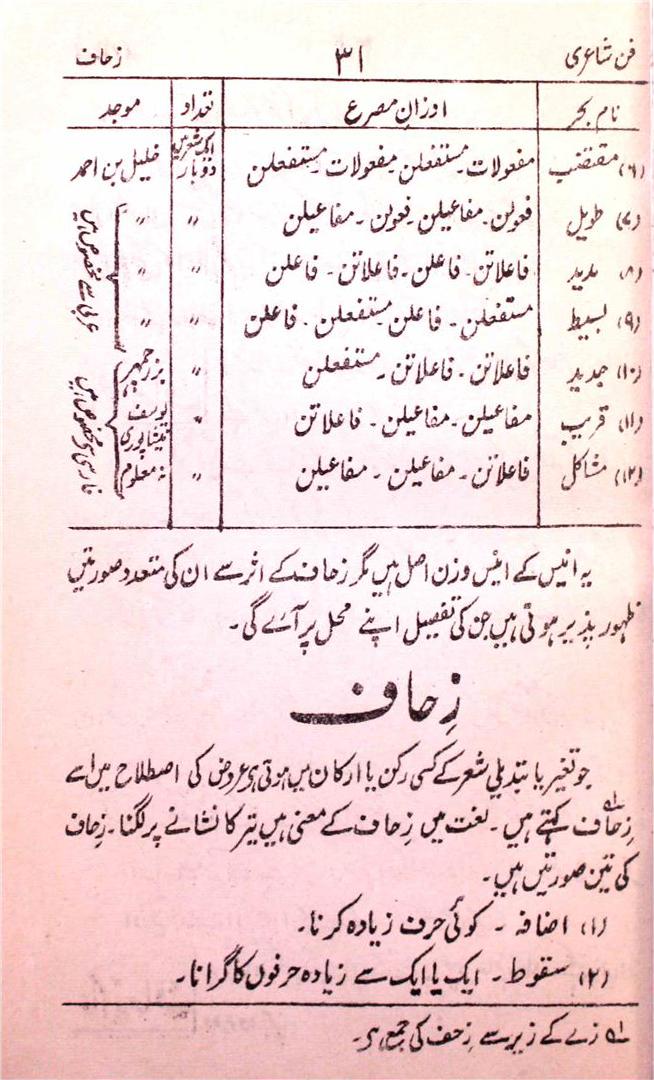 فن شاعری ۳۱ زحاف
نام بحر اوزانِ مصرع تعداد موجد
(۶) مقتضب مفعولات۔ مستفعلن۔ مفعولات۔ مستفعلن ایک شعر میں دو بار خلیل بن احمد
(۷) طویل فعولن۔ مفاعیلن۔ فعولن۔ مفاعیلن 〃 〃
(۸) مدید فاعلاتن۔ فاعلن۔ فاعلاتن۔ فاعلن 〃 〃
(۹) بسیط مستفعلن۔ فاعلن۔ مستفعلن۔ فاعلن 〃 〃
عربی سے مخصوص ہیں
(۱۰) جدید فاعلاتن۔ فاعلاتن۔ مستفعلن 〃 بزرجمہر
(۱۱) قریب مفاعیلن۔ مفاعیلن۔ فاعلاتن 〃 یوسف نیشاپوری
(۱۲) مشاکل فاعلاتن۔ مفاعیلن۔ مفاعیلن 〃 نہ معلوم
فارسی سے مخصوص ہیں
یہ انیس کے انیس وزن اصل ہیں مگر زحاف کے اثر سے ان کی متعدد صورتیں
ظہور پذیر ہوئی ہیں جن کی تفصیل اپنے محل پر آئے گی۔
زِحاف
جو تغیر یا تبدیلی شعر کے کسی رکن یا ارکان میں ہوتی ہی عروض کی اصطلاح میں اسے
زِحاف کہتے ہیں۔ لغت میں زِحاف کے معنی ہیں تیر کا نشانے پر لگنا۔ زِحاف
کی تین صورتیں ہیں۔
(۱) اضافہ۔ کوئی حرف زیادہ کرنا۔
(۲) سقوط۔ ایک یا ایک سے زیادہ حرفوں کا گرانا۔
لہ زے کے زیر سے زِحف کی جمع ہی۔